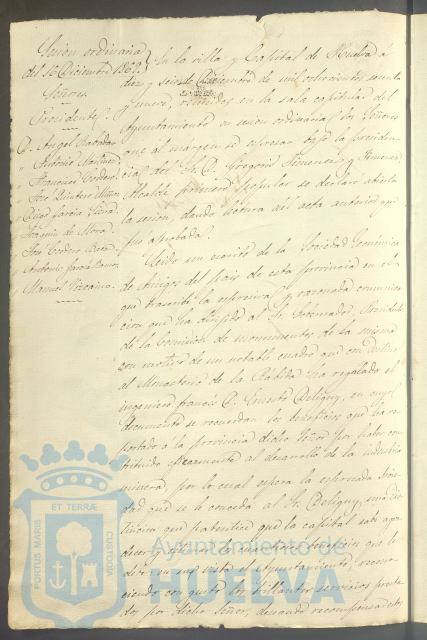 Sesion ordinaria
del 16 Diciembre 1869.
Señores
Presidente
D. Angel Rabadan
" Antonio Martinez
" Francisco Cordero
" José Quintero
" Diego Garcia
" Joaquin de Mora
" José Cordero
" Antonio Garcia Ramos
" Manuel Vizcaino
En la villa y Capital de Huelva á
diez y seis de Diciembre de mil ochocientos sesenta
y nueve, reunidos en la sala capitular del
Ayuntamiento en sesion ordinaria los Señores
que al margen se espresan bajo la presiden-
cia del Sr. D. Gregorio Jimenez y Jimenez,
Alcalde primero popular se declaró abierta
la sesion, dando lectura al acta anterior que
fue aprobada.
Leido un escrito de la Sociedad Económica
de Amigos del pais de esta provincia en el
que trascribe la espresiva y razonada comunica-
cion que ha dirijido al Sr. Gobernador, Presidente
de la Comision de monumentos de la misma
con motivo de un notable cuadro que con destino
al Monasterio de la Rábida ha regalado el
ingeniero francés D. Ernesto Deligny, en cuyo
documento se recuerdan los beneficios que ha re-
portado á la provincia dicho Señor por haber con-
tribuido eficazmente al desarrollo de la industria
minera, por lo cual espera la espresada Socie-
dad que se le conceda al Sr. Deligny, una dis-
tincion que patentice que la capital sabe agra-
decer y apreciar los beneficios que le
debe; en su vista el Ayuntamiento, recono-
ciendo con gusto los brillantes servicios presta-
dos por dicho Señor, deseando recompensarlos
PORTUS MARIS
ET TERRÆ
CUSTODIA
Ayuntamiento de
HUELVA